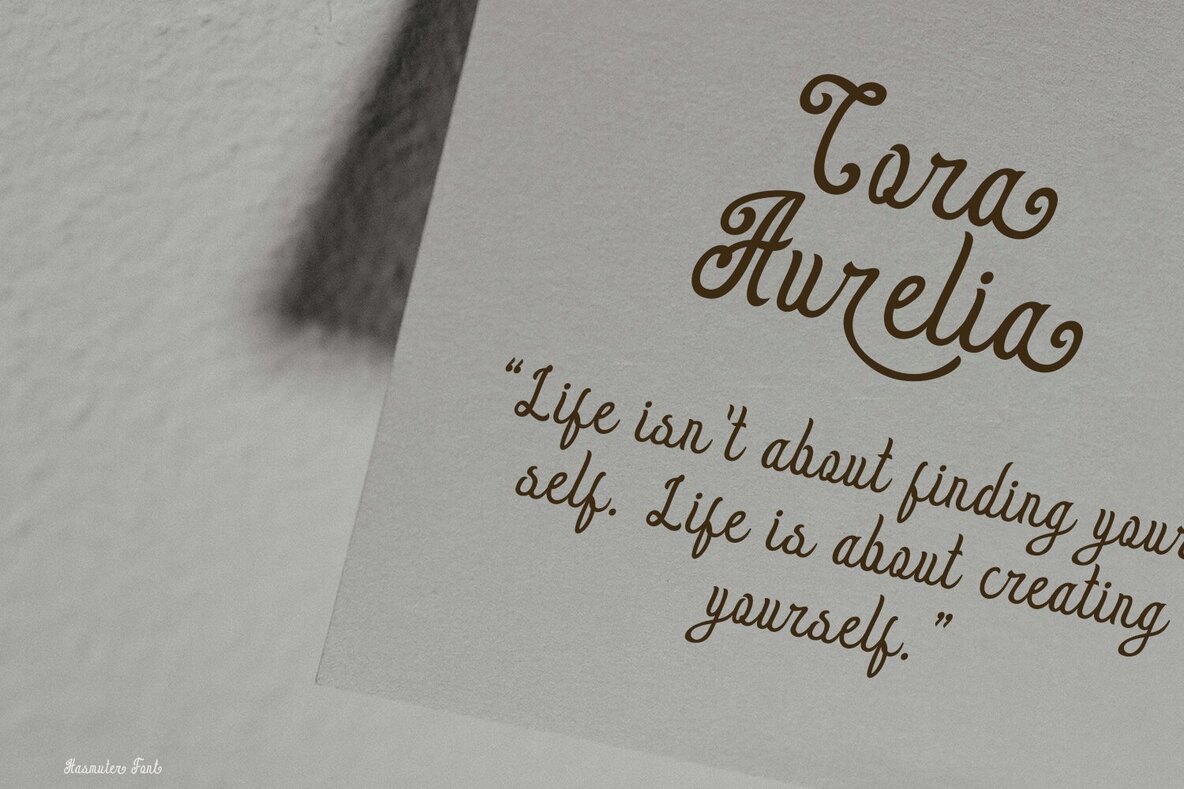 Tora
Aurelia
“Life isn't about finding your
self. Life is about creating
yourself.”
Hasmuter Font